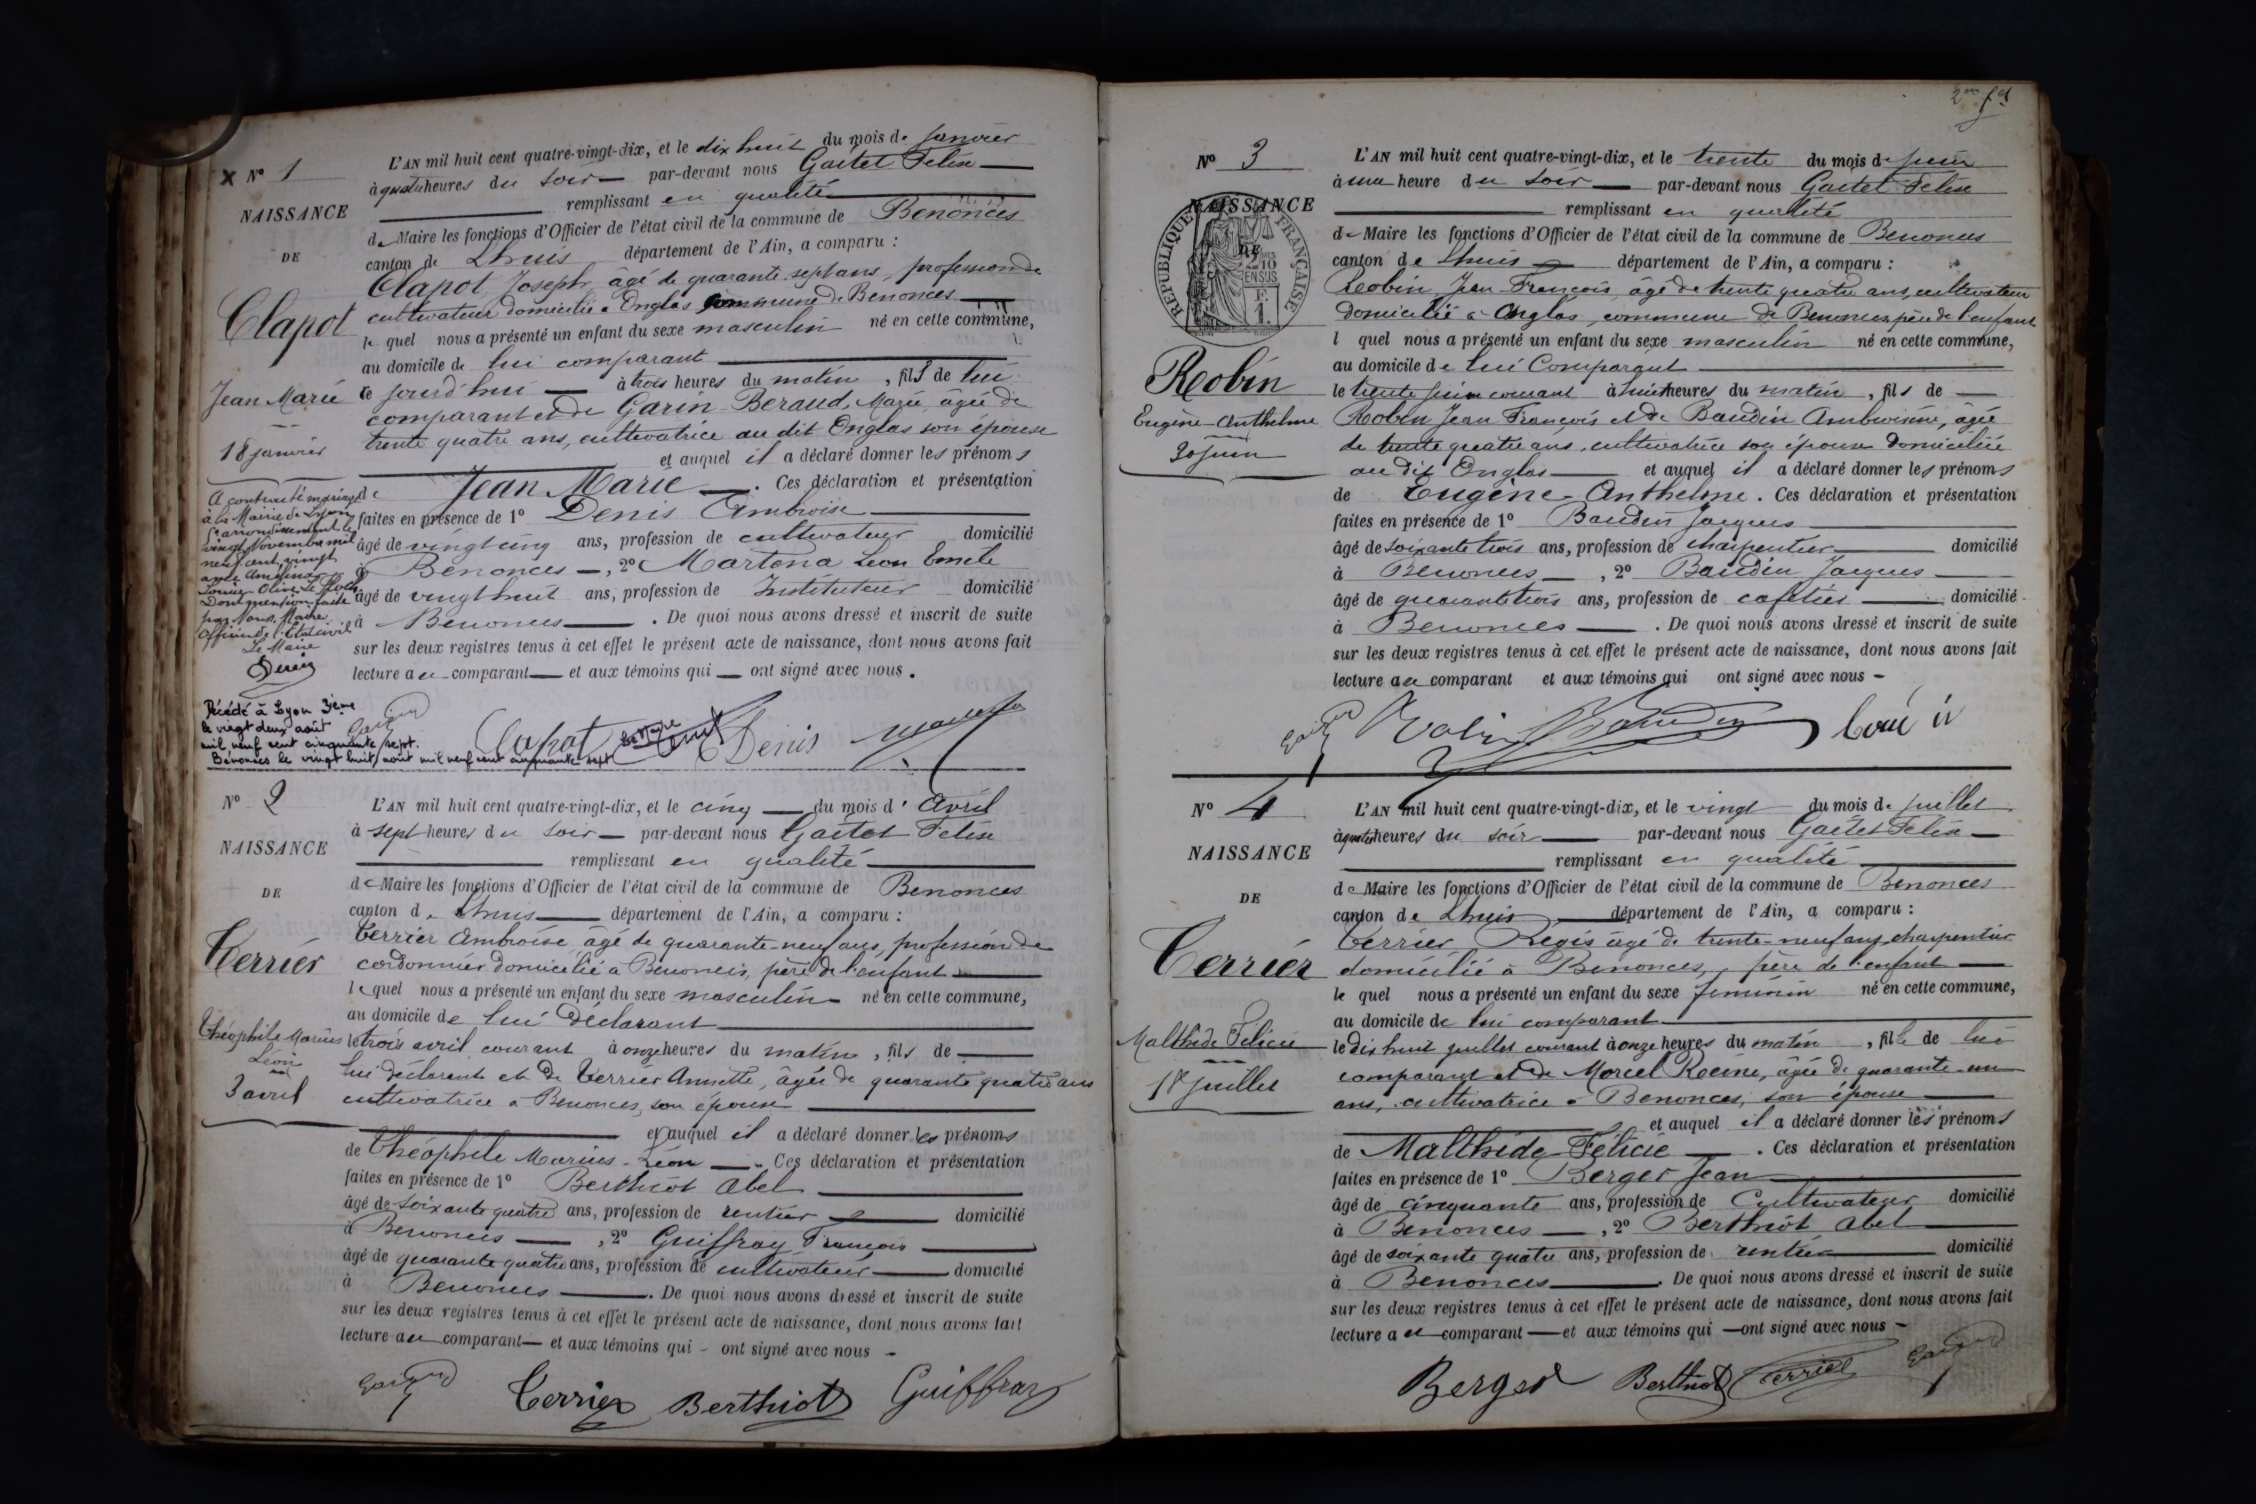 × N° 1
NAISSANCE
DE
Clapot
Jean Marie
18 janvier
A contracté mariage
à la Mairie de Lyon
arrondissement le
vingt Novembre mil
neuf cent vingt
avec
Dont mention faite
par Nous, Maire
Officier de l'Etat civil
Le Maire
Décédé à Lyon 3ième
le vingt deux août
mil neuf cent cinquante sept.
Bénonces le vingt huit août mil neuf cent cinquante sept
L'AN mil huit cent quatre-vingt-dix, et le dix huit du mois de janvier
à quatre heures du soir — par-devant nous Gaitet Félix —
remplissant en qualité
de Maire les fonctions d'Officier de l'état civil de la commune de Benonces
canton de Lhuis département de l'Ain, a comparu :
Clapot Joseph, âgé de quarante sept ans, profession de
cultivateur domicilié à Onglas commune de Bénonces —
le quel nous a présenté un enfant du sexe masculin né en cette commune,
au domicile de lui comparant —
ce jourd'hui — à trois heures du matin, fils de lui
comparant et de Garin-Beraud, Marie, âgée de
trente quatre ans, cultivatrice au dit Onglas son épouse
et auquel il a déclaré donner les prénoms
de Jean Marie —. Ces déclaration et présentation
faites en présence de 1° Denis Ambroise —
âgé de vingt cinq ans, profession de cultivateur domicilié
à Benonces —, 2° Martona Léon Emile
âgé de vingt huit ans, profession de Instituteur domicilié
à Benonces —. De quoi nous avons dressé et inscrit de suite
sur les deux registres tenus à cet effet le présent acte de naissance, dont nous avons fait
lecture au comparant — et aux témoins qui — ont signé avec nous.
Clapot Le Maire Denis
N° 2
NAISSANCE
DE
Terrier
Théophile Marius
Léon
3 avril
L'AN mil huit cent quatre-vingt-dix, et le cinq — du mois d'Avril
à sept heures du soir — par-devant nous Gaitet Félix
remplissant en qualité —
de Maire les fonctions d'Officier de l'état civil de la commune de Benonces
canton de Lhuis — département de l'Ain, a comparu :
Terrier Ambroise, âgé de quarante-neuf ans, profession de
cordonnier domicilié à Benonces, père de l'enfant —
le quel nous a présenté un enfant du sexe masculin — né en cette commune,
au domicile de lui Déclarant —
le trois avril courant à onze heures du matin, fils de —
lui déclarant et de Terrier Annette, âgée de quarante quatre ans
cultivatrice à Benonces, son épouse —
et auquel il a déclaré donner les prénoms
de Théophile Marius-Léon —. Ces déclaration et présentation
faites en présence de 1° Berthiot Abel —
âgé de soixante quatre ans, profession de rentier — domicilié
à Benonces —, 2° Guiffray François —
âgé de quarante quatre ans, profession de cultivateur — domicilié
à Benonces —. De quoi nous avons dressé et inscrit de suite
sur les deux registres tenus à cet effet le présent acte de naissance, dont nous avons fait
lecture au comparant — et aux témoins qui - ont signé avec nous -
Terrier Berthiot Guiffray
N° 3
NAISSANCE
DE
RÉPUBLIQUE FRANÇAISE
Robin
Eugène-Anthelme
30 juin
L'AN mil huit cent quatre-vingt-dix, et le trente du mois de juin
à une heure du soir — par-devant nous Gaitet Félix
remplissant en qualité
de Maire les fonctions d'Officier de l'état civil de la commune de Benonces
canton de Lhuis — département de l'Ain, a comparu :
Robin Jean-François, âgé de trente quatre ans, cultivateur
domicilié à Onglas, commune de Benonces, père de l'enfant
l quel nous a présenté un enfant du sexe masculin né en cette commune,
au domicile de lui Comparant —
le trente juin courant à huit heures du matin, fils de —
Robin Jean François et de Baudin Ambroisine, âgée
de trente quatre ans, cultivatrice son épouse domiciliée
au dit Onglas — et auquel il a déclaré donner les prénoms
de Eugène-Anthelme. Ces déclaration et présentation
faites en présence de 1° Baudin Jacques —
âgé de soixante trois ans, profession de charpentier — domicilié
à Benonces —, 2° Baudin Jacques —
âgé de quarante trois ans, profession de cafetier — domicilié
à Benonces —. De quoi nous avons dressé et inscrit de suite
sur les deux registres tenus à cet effet le présent acte de naissance, dont nous avons fait
lecture au comparant et aux témoins qui ont signé avec nous -
Robin Baudin
N° 4
NAISSANCE
DE
Terrier
Malthide Félicie
18 juillet
L'AN mil huit cent quatre-vingt-dix, et le vingt du mois de juillet
à quatre heures du soir — par-devant nous Gaitet Félix —
remplissant en qualité —
de Maire les fonctions d'Officier de l'état civil de la commune de Benonces
canton de Lhuis — département de l'Ain, a comparu :
Terrier Régis âgé de trente-neuf ans, charpentier
domicilié à Benonces, père de l'enfant —
le quel nous a présenté un enfant du sexe feminin né en cette commune,
au domicile de lui comparant —
le dix huit juillet courant à onze heures du matin, fille de lui
comparant et de Morcel Reine, âgée de quarante-un
ans, cultivatrice à Benonces, son épouse —
et auquel il a déclaré donner les prénoms
de Malthide-Félicie —. Ces déclaration et présentation
faites en présence de 1° Berger Jean —
âgé de cinquante ans, profession de Cultivateur domicilié
à Benonces —, 2° Berthiot Abel —
âgé de soixante quatre ans, profession de rentier — domicilié
à Benonces —. De quoi nous avons dressé et inscrit de suite
sur les deux registres tenus à cet effet le présent acte de naissance, dont nous avons fait
lecture au comparant — et aux témoins qui — ont signé avec nous -
Berger Berthiot Terrier